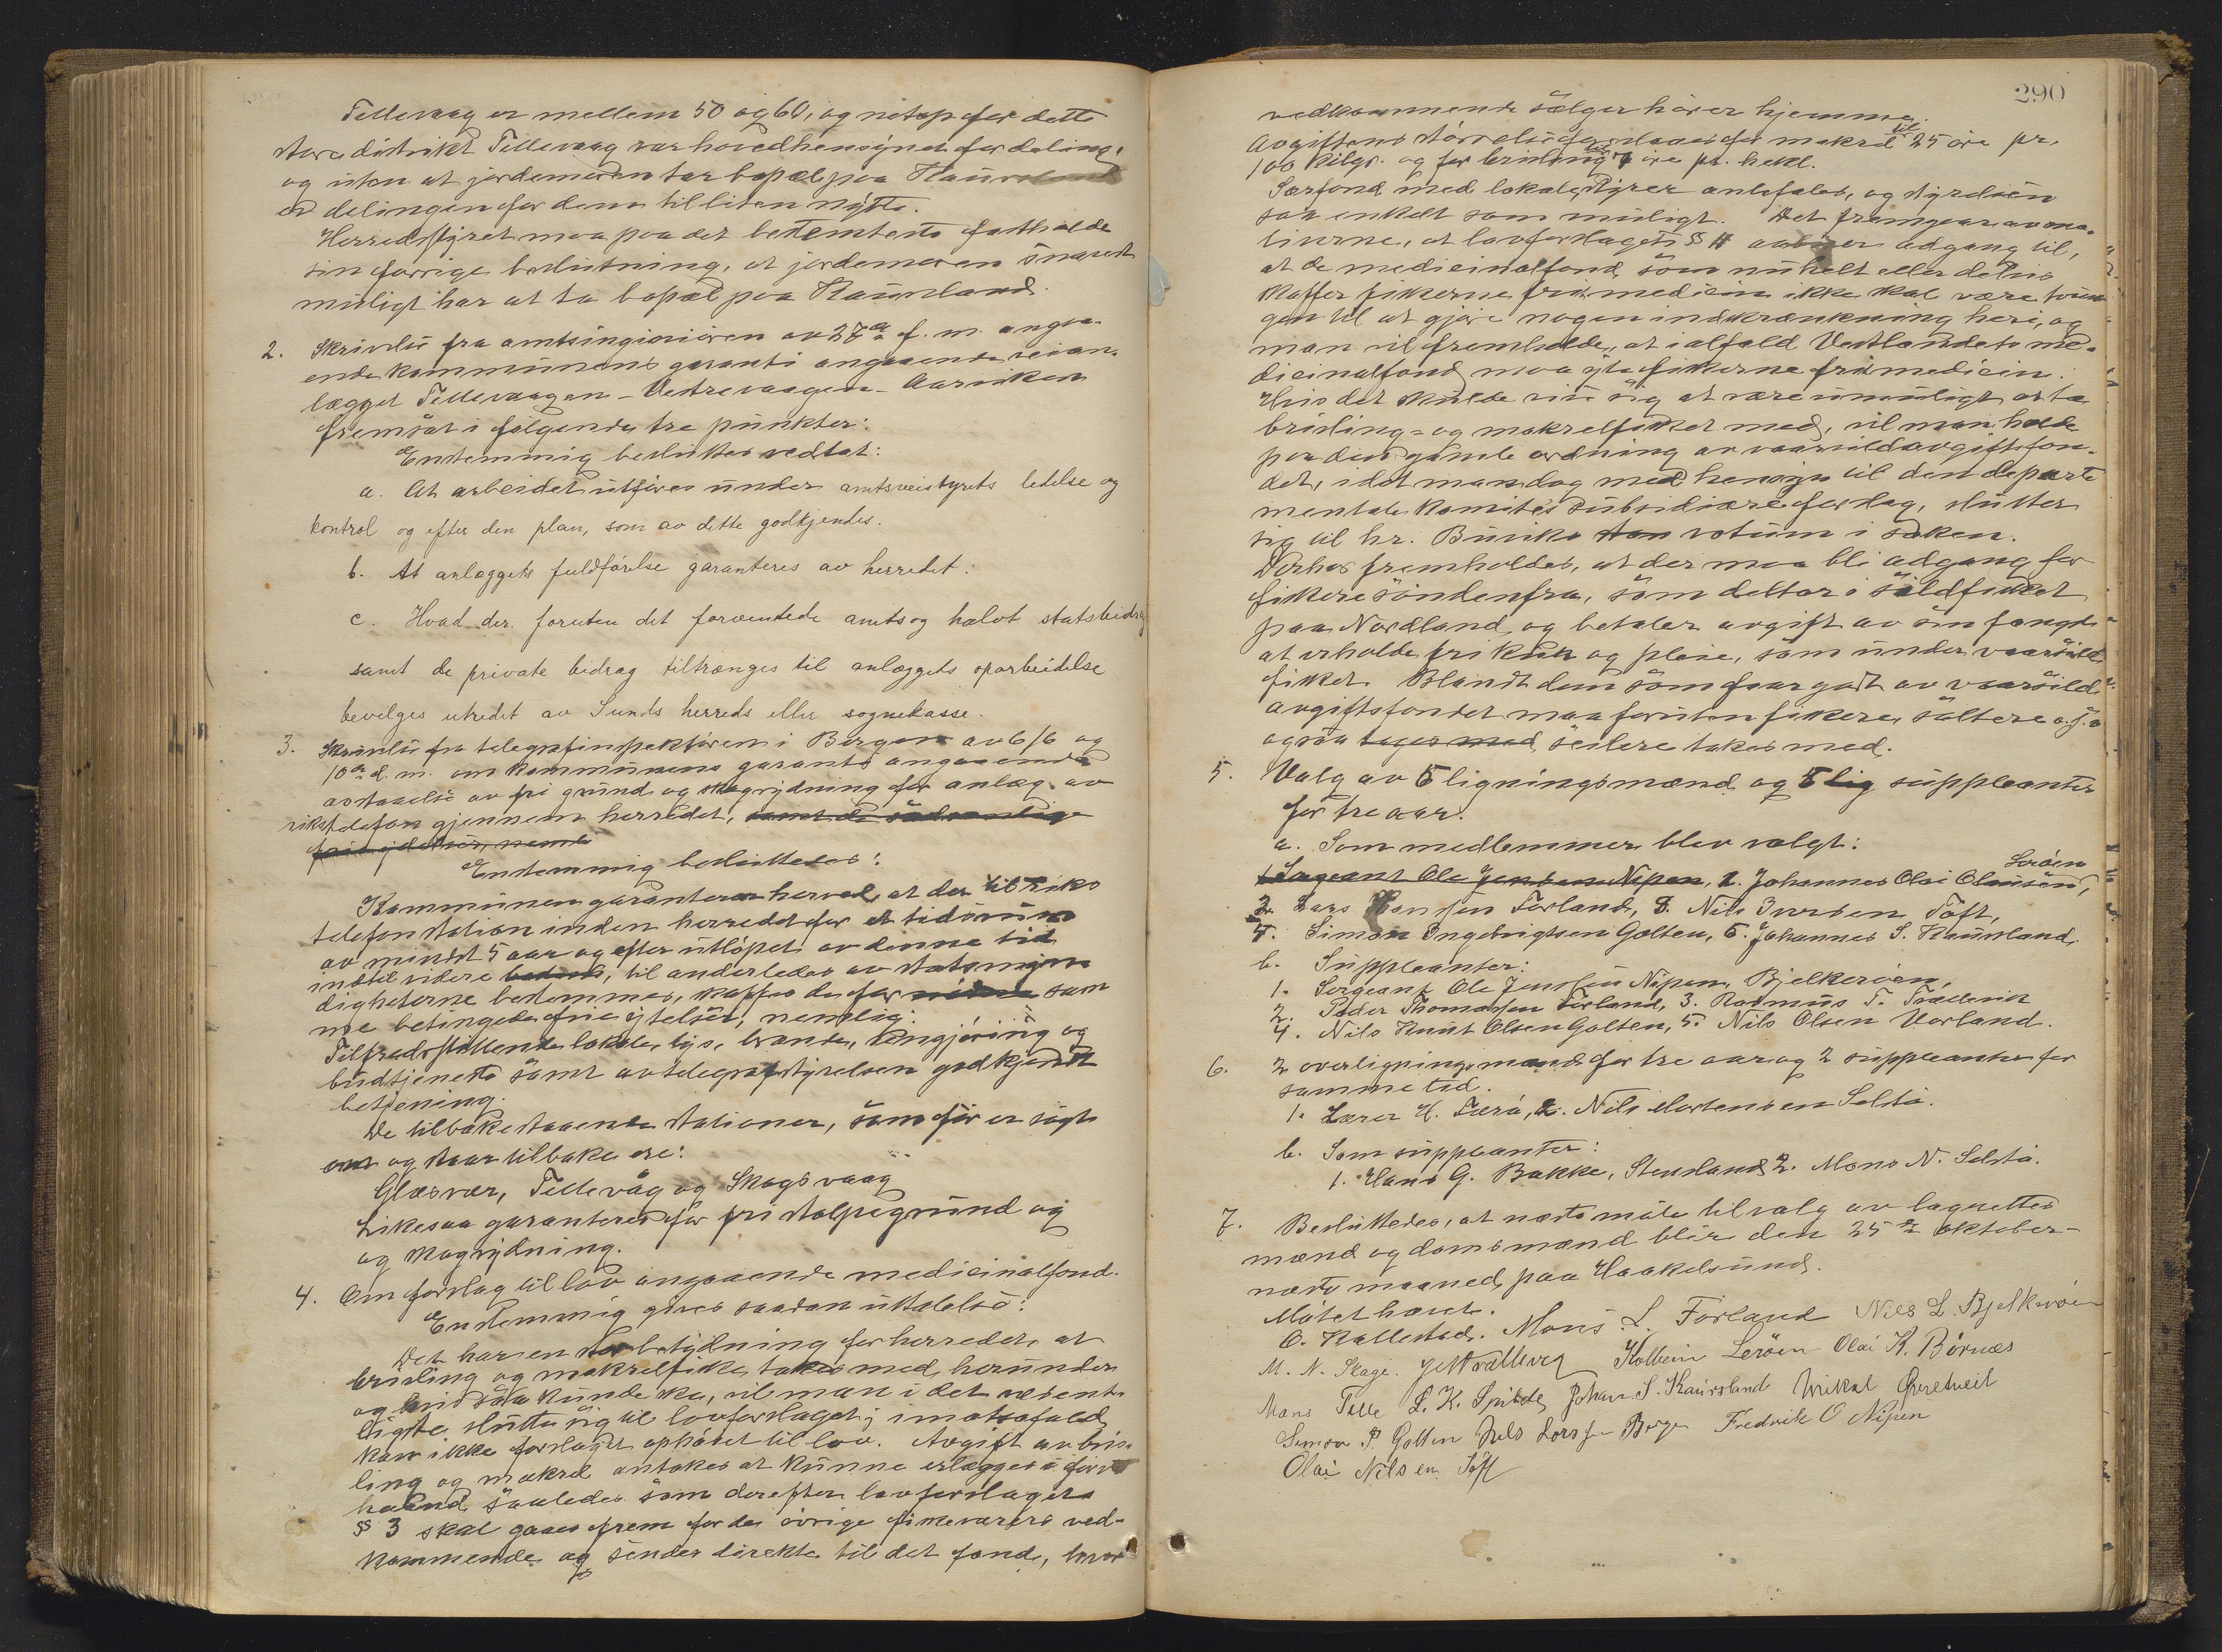 Tellevaag er mellem 50 og 60, og netop for dette
store distrikt Tellevaag var hovedhensynet for deling,
og uten at jordemoren tar bopæl paa Kausland
er delingen for dem til liten nytte.
Herredstyret maa paa det bestemteste fastholde
sin forrige beslutning, at jordemoren snarest
muligt har at ta bopæl paa Kausland.
2. Skrivelse fra amtsingeniøren av 27de f. m. angaa-
ende kommunens garanti angaaende veian-
lægget Tellevaagen - Vestrevaagen - Aarviken
fremsat i følgende tre punkter:
Enstemmig besluttes vedtat:
a. At arbeidet utføres under amtsveistyrets ledelse og
kontrol og efter den plan, som av dette godkjendes.
b. At anlæggets fuldførelse garanteres av herredet:
c. Hvad der foruten det forventede amts og halvt statsbidrag
samt de private bidrag tiltrænges til anlæggets oparbeidelse
bevilges utredet av Sunds herreds eller sognekasse.
3. Skrivelse fra telegrafinspektøren i Bergen av 6/6 og
10de d. m. om kommunens garanti angaaende
avstaaelse av fri grund og skogrydning for anlæg av
rikstelefon gjennem herredet, samt de sedvanlige
friydelser, nemli
Enstemmig besluttedes:
Kommunen garanterer herved, at der til riks
telefonstation inden herredet for et tidsrum
av mindst 5 aar og efter utløpet av denne tid
indtil videre, til anderledes av statsmyn
digheterne bestemmes, skaffes de for som
me betingede frie ytelser, nemlig:
Tilfredsstillende lokale, lys, brænde, rengjøring og
budtjeneste samt av telegrafstyrelsen godkjendt
betjening.
De tilbakestaaende stationer, som før er søgt
om og staar tilbake ere:
Glæsvær, Tellevåg og Skogsvaag
Likesaa garanteres for fri stolpegrund og
og skogrydning.
4. Om forslag til lov angaaende medicinalfond.
Enstemmig gives saadan uttalelse:
Det har en stor betydning for herredet, at
brisling og makrelfiske takes med herunder
og hvis saa kunde ske, vil man i det væsent-
ligste slutte sig til lovforslaget; i motsat fald
kan ikke forslaget ophøiet til lov. Avgift av bris-
ling og makrel antakes at kunne erlægges i første
haand, saaledes som derefter lovforslagets
§ 3 skal gaaes frem for de øvrige fiskevarers ved-
kommende, og sendes direkte til det fond, hvor
290
vedkommende sælger hører hjemme.
Avgiftens størrelse foreslaaes for makrel til 25 øre pr.
100 kilgr. og for brisling til øre pr. hekl.
Særfond med lokale styrer anbefales, og styrelsen
saa enkelt som muligt. Det fremgaar av mo-
tiverne, at lovforslagets § 11 aabner adgang til,
at de medicinalfond som nu helt eller delvis
skaffer fiskerne fri medicin ikke skal være tvun
gen til at gjøre nogen indskrænkning heri, og
man vil fremholde, at ialfald Vestlandets me-
dicinalfond maa yte fiskerne fri medicin.
Hvis det skulde vise sig at være umuligt at ta
brisling- og makrelfisket med, vil man holde
paa den gamle ordning av vaarsildavgiftsfon-
det, idet man dog med hensyn til den departe
mentale komités subsidiære forslag, slutter
sig til hr. votum i saken.
Derhos fremholdes, at der maa bli adgang for
fiskere søndenfra, som deltar i sildfisket
paa Nordland og betaler avgift av sin fangst
at erholde fri kur og pleie, som under vaarsild
fisket. Blandt dem som faar godt av vaarsild-
avgiftsfondet maa foruten fiskere, saltere o.s.v.
ogsaa tages med seilere takes med.
5. Valg av 5 ligningsmænd og 5 lig suppleanter
for tre aar.
a. Som medlemmer blev valgt:
1 Sergeant Ole Jensen Nipen, 1. Johannes Olai Olausen, Lerøen
2. Lars Hansen Førland, 3. Nils Iversen Toft,
4. Simon Ingebrigtsen Golten, 5. Johannes S. Kausland.
b. Suppleanter:
1. Sergeant Ole Jensen Nipen, Bjelkerøen,
2. Peder Thomassen Førland, 3. Rasmus T. Træderik
4. Nils Knut Olsen Golten, 5. Nils Olsen Vorland.
6. 2 overligningsmænd for tre aar og 2 suppleanter for
samme tid.
1. Lærer H. Færø, 2. Nils Mortensen Selstø.
b. Som suppleanter:
1. Hans G. Bakke, Steinsland 2. Mons N. Selstø.
7. Besluttedes, at næste møte til valg av lagrettes
mænd og domsmænd blir den 25de oktober
næste maaned paa Haakelsund.
Møtet hævet.
O. Kallestad. Mons L. Førland Nils L. Bjelkerøen
M. N. Skage. Kolbein Lerøen Olai K. Børnes
Mons Telle L. K. Spilde Johan S. Kausland Mikal Qvretveit
Simon P. Golten Nils Larssen Berge Fredrik O Nipen
Olai Nilsen Toft